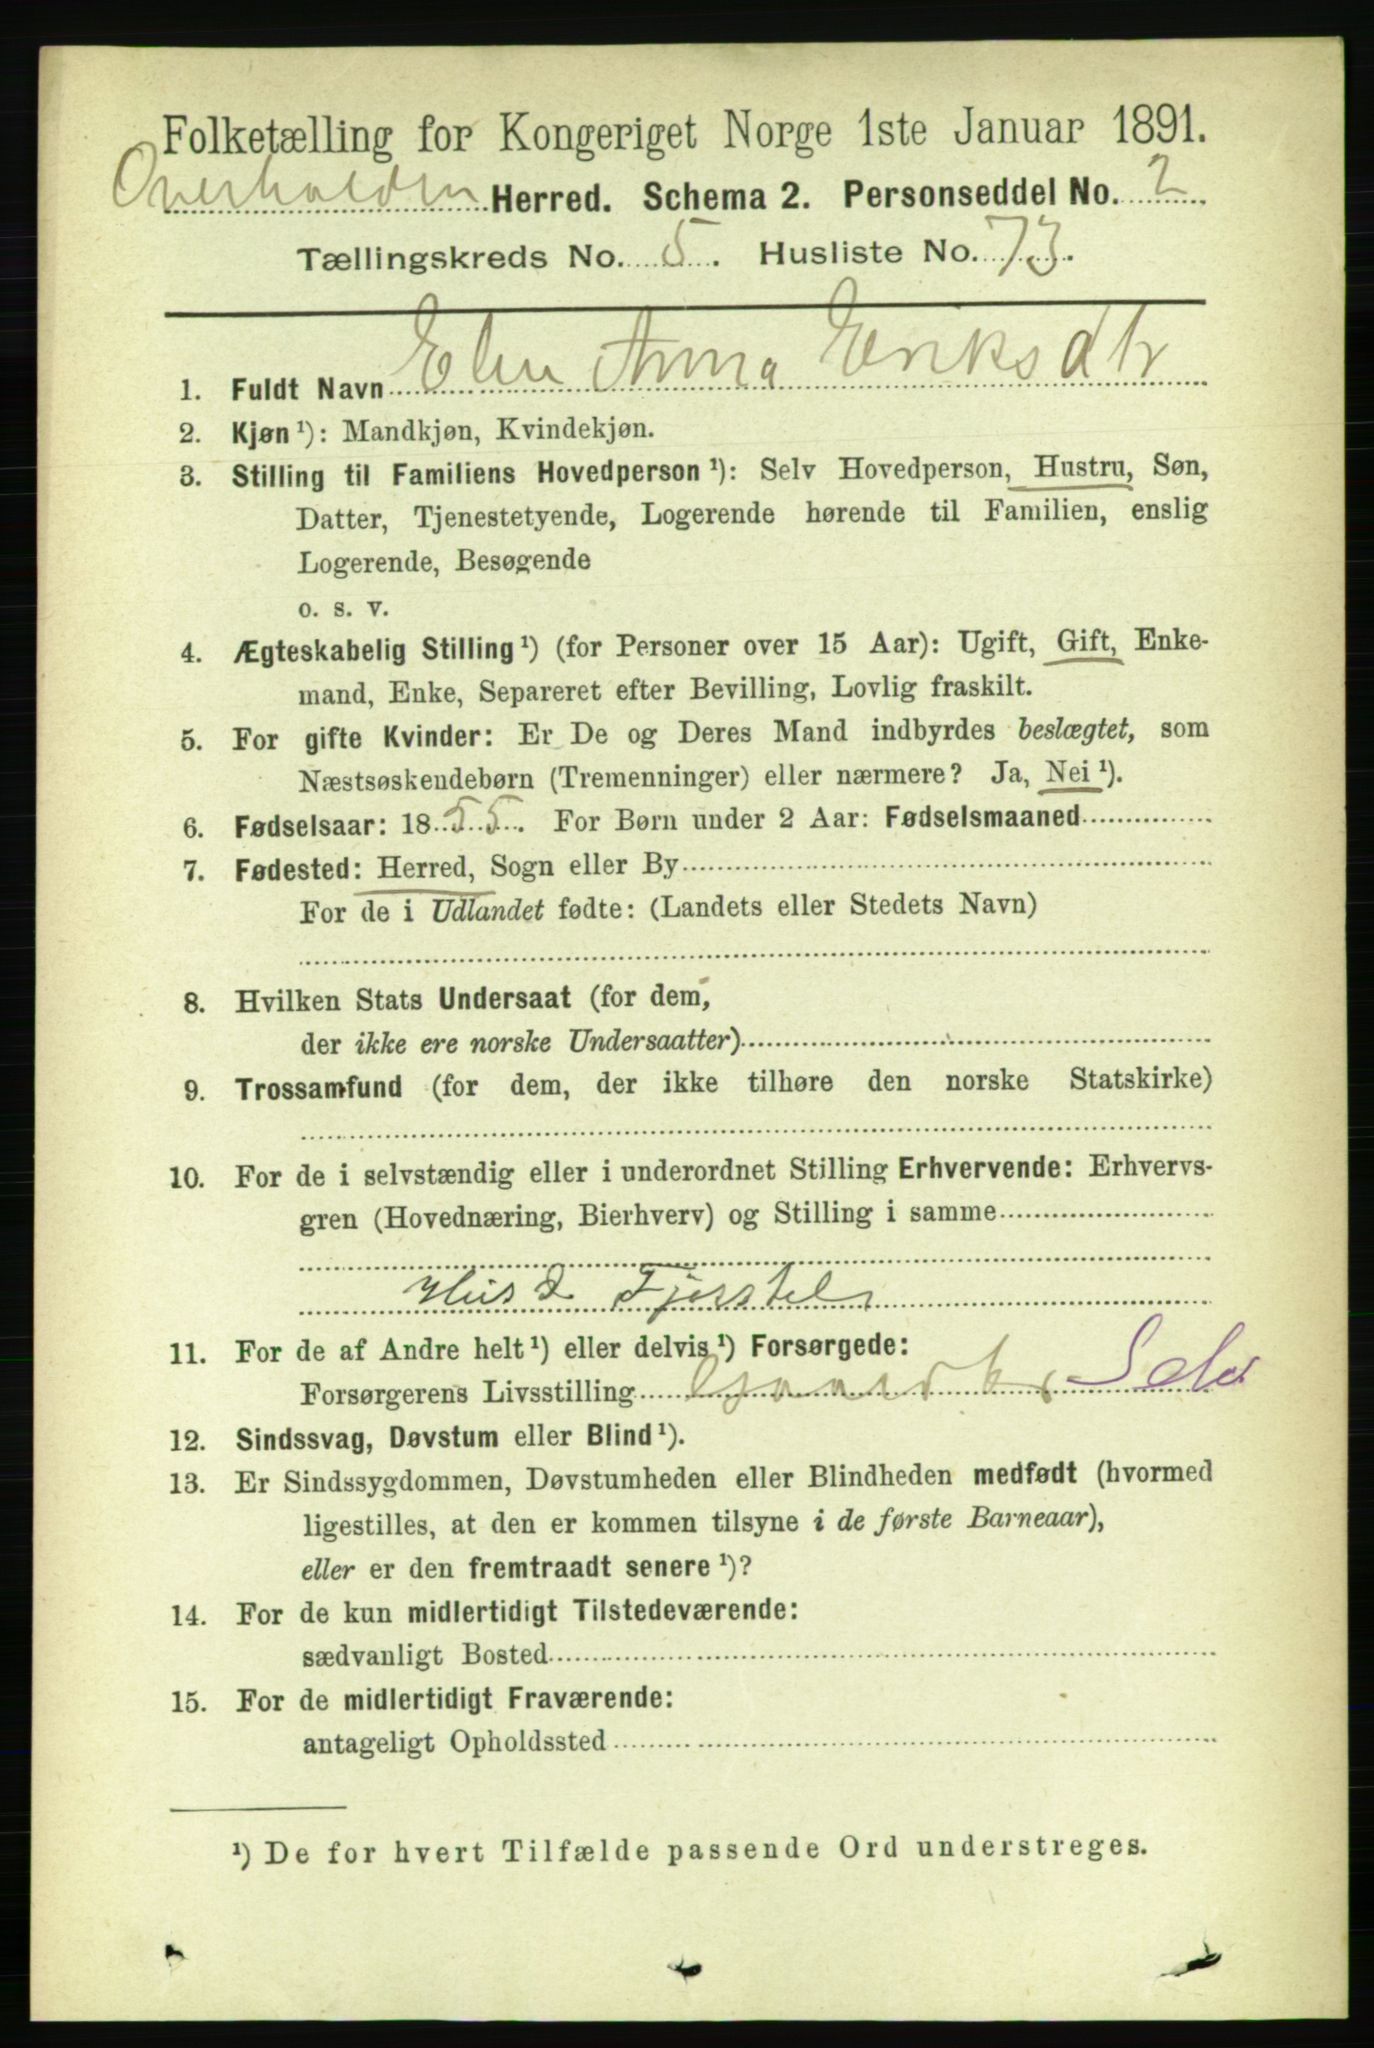 Folketælling for Kongeriget Norge 1ste Januar 1891.
Overhalden Herred. Schema 2. Personseddel No. 2
Tællingskreds No. 5. Husliste No. 73.
1. Fuldt Navn Elen Anna Eriksdtr
2. Kjøn ¹): Mandkjøn, Kvindekjøn.
3. Stilling til Familiens Hovedperson ¹): Selv Hovedperson, Hustru, Søn,
Datter, Tjenestetyende, Logerende hørende til Familien, enslig
Logerende, Besøgende
o. s. v.
4. Ægteskabelig Stilling ¹) (for Personer over 15 Aar): Ugift, Gift, Enke-
mand, Enke, Separeret efter Bevilling, Lovlig fraskilt.
5. For gifte Kvinder: Er De og Deres Mand indbyrdes beslægtet, som
Næstsøskendebørn (Tremenninger) eller nærmere? Ja, Nei ¹).
6. Fødselsaar: 1855. For Børn under 2 Aar: Fødselsmaaned
7. Fødested: Herred, Sogn eller By
For de i Udlandet fødte: (Landets eller Stedets Navn)
8. Hvilken Stats Undersaat (for dem,
der ikke ere norske Undersaatter)
9. Trossamfund (for dem, der ikke tilhøre den norske Statskirke)
10. For de i selvstændig eller i underordnet Stilling Erhvervende: Erhvervs-
gren (Hovednæring, Bierhverv) og Stilling i samme
Hus & Fjøsstel
11. For de af Andre helt ¹) eller delvis ¹) Forsørgede:
Forsørgerens Livsstilling Gaardbr Selv
12. Sindssvag, Døvstum eller Blind ¹).
13. Er Sindssygdommen, Døvstumheden eller Blindheden medfødt (hvormed
ligestilles, at den er kommen tilsyne i de første Barneaar),
eller er den fremtraadt senere ¹)?
14. For de kun midlertidigt Tilstedeværende:
sædvanligt Bosted
15. For de midlertidigt Fraværende:
antageligt Opholdssted
¹) De for hvert Tilfælde passende Ord understreges.